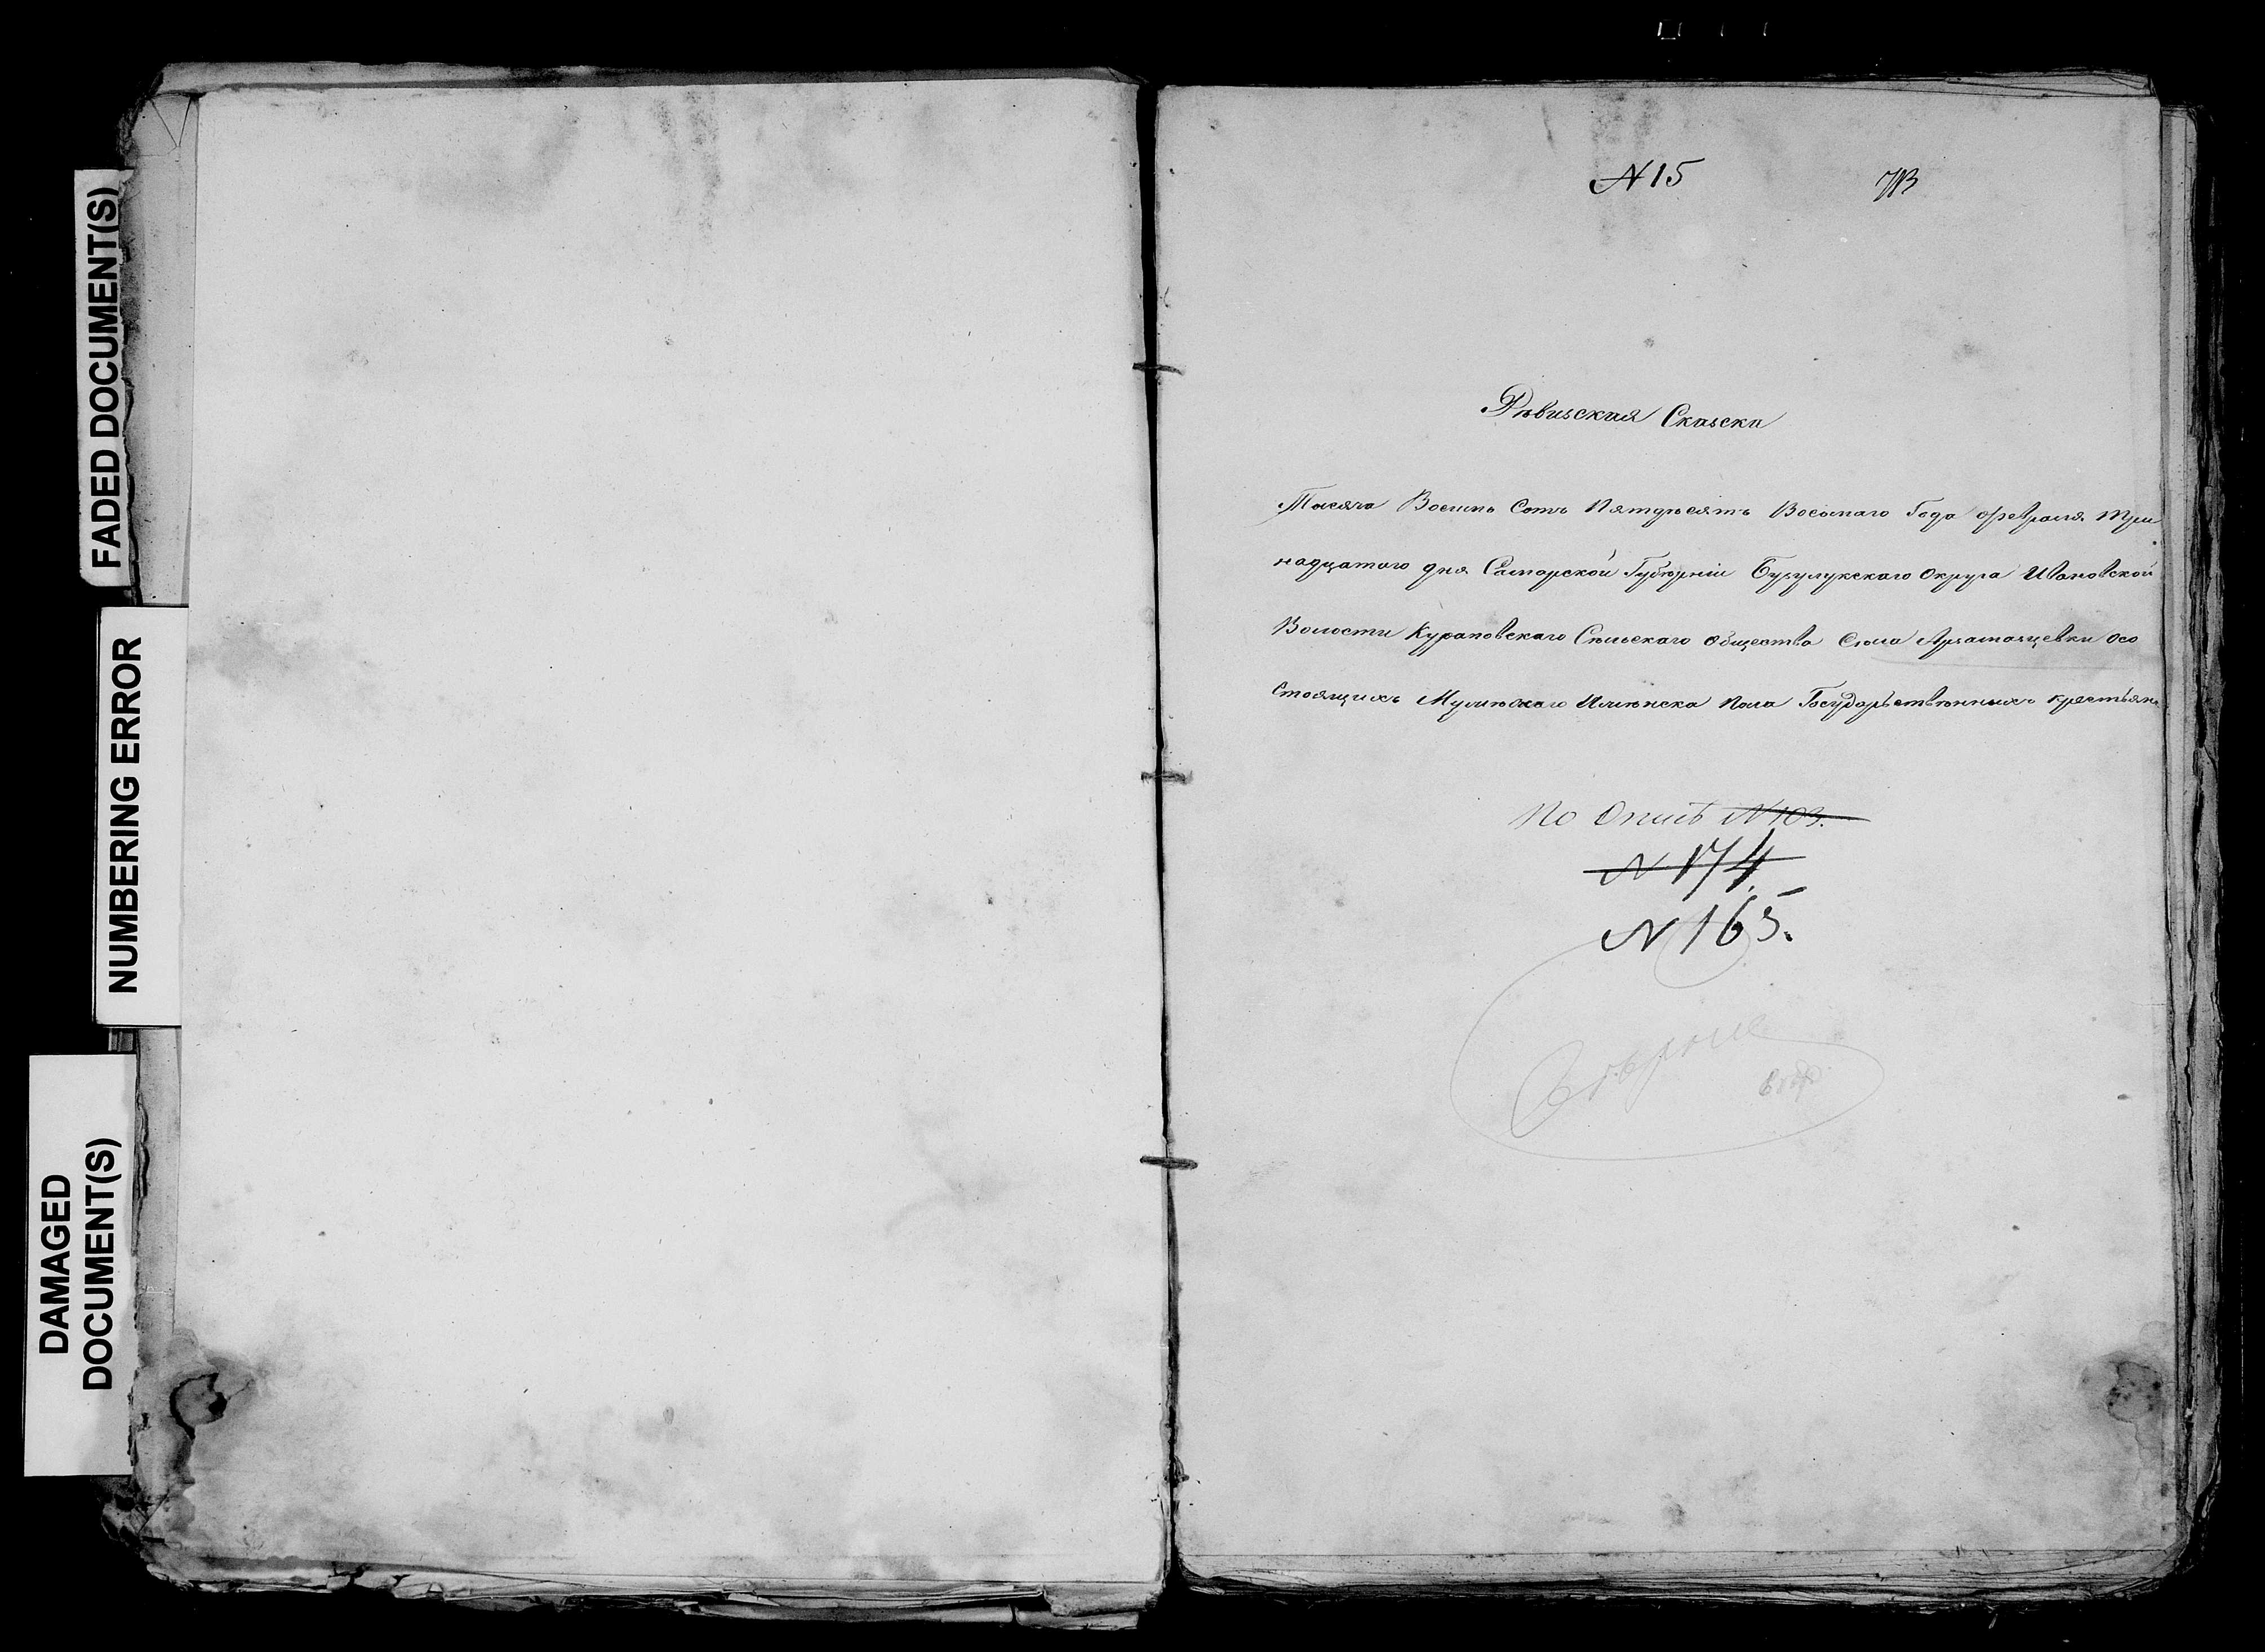 FADED DOCUMENT(S)
NUMBERING ERROR
DAMAGED
DOCUMENT(S)
№ 15
Рѣвизская Сказска
Тысяча Восимь Сотъ Пятдѣсятъ Восьмаго Года февраля Три
надцатаго дня Самарской Губѣрніи Бузулукскаго Округа Ивановской
Волости Кураповскаго Сѣльскаго Общества Сѣла Арзамасцевки осо
Стоящихъ и Государьствѣнныхъ крестьянъ
По Описѣ № 103.
№ 174
№ 165.